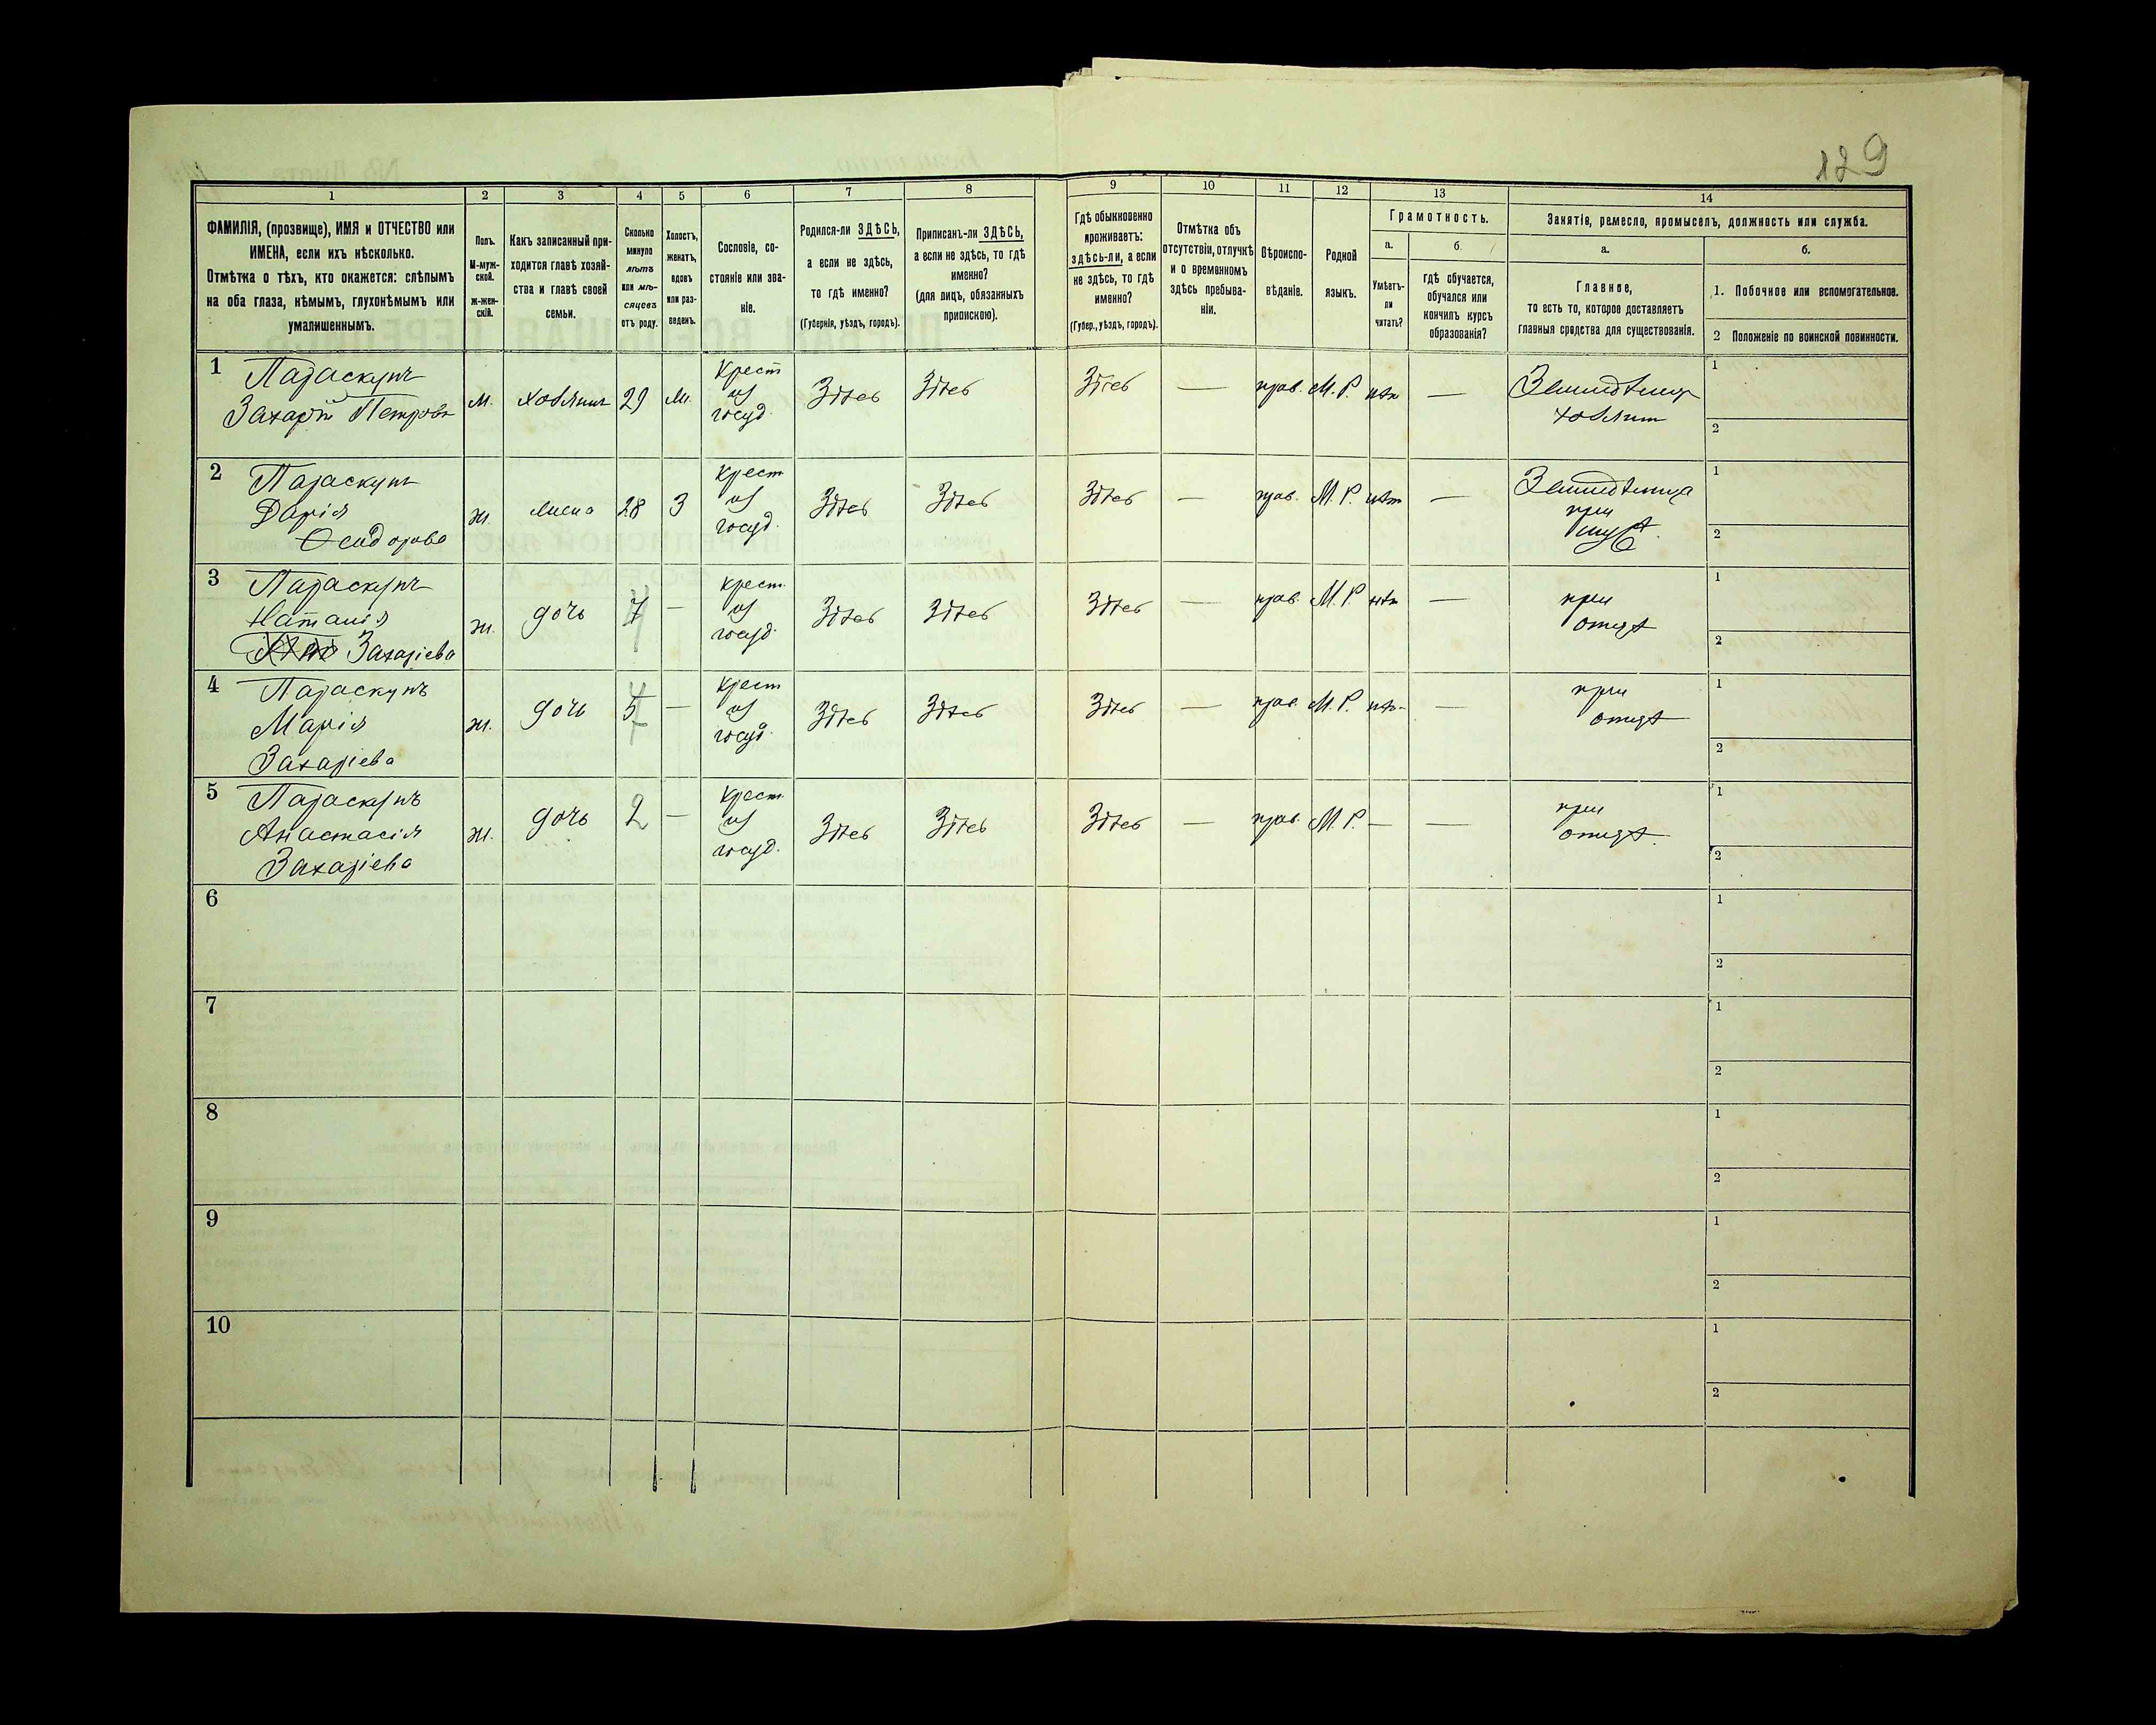 129
1
2
3
4
5
6
7
8
9
10
11
12
13
14
ФАМИЛІЯ, (прозвище), ИМЯ и ОТЧЕСТВО или
ИМЕНА, если ихъ нѣсколько.
Отмѣтка о тѣхъ, кто окажется: слѣпымъ
на оба глаза, нѣмымъ, глухонѣмымъ или
умалишеннымъ.
Полъ.
М-муж-
ской.
ж-жен-
скій.
Какъ записанный при-
ходится главѣ хозяй-
ства и главѣ своей
семьи.
Сколько
минуло
лѣтъ
или мѣ-
сяцевъ
отъ роду.
Холостъ,
женатъ,
вдовъ
или раз-
веденъ.
Сословіе, со-
стояніе или зва-
ніе.
Родился-ли ЗДѢСЬ,
а если не здѣсь,
то гдѣ именно?
(Губернія, уѣздъ, городъ).
Приписанъ-ли ЗДѢСЬ,
а если не здѣсь, то гдѣ
именно?
(для лицъ, обязанныхъ
припискою).
Гдѣ обыкновенно
проживаетъ:
здѣсь-ли, а если
не здѣсь, то гдѣ
именно?
(Губер., уѣздъ, городъ).
Отмѣтка объ
отсутствіи, отлучкѣ
и о временномъ
здѣсь пребыва-
ніи.
Вѣроиспо-
вѣданіе.
Родной
языкъ.
Грамотность.
а.
б.
Умѣетъ-
ли
читать?
гдѣ обучается,
обучался или
кончилъ курсъ
образованія?
Занятіе, ремесло, промыселъ, должность или служба.
а.
б.
Главное,
то есть то, которое доставляетъ
главныя средства для существованія.
1. Побочное или вспомогательное.
2 Положеніе по воинской повинности.
1
Параскунъ
Захарій Петровъ
м.
хозяинъ
29
Крест
из
госуд.
Здѣсь
Здѣсь
Здѣсь
—
прав.
М. Р.
нѣт
—
хозяин
1
2
2
Параскунъ
Дарія
ж.
жена
28
З
Крест
из
госуд.
Здѣсь
Здѣсь
Здѣсь
—
прав.
М. Р.
нѣт
—
при
мужѣ.
1
2
3
Параскунъ
Наталія
Захаріева
ж.
дочь
7
—
Крест.
из
госуд.
Здѣсь
Здѣсь
Здѣсь
—
прав.
М. Р.
нѣт
—
при
отцѣ
1
2
4
Параскунъ
Марія
Захаріева
ж.
дочь
—
Крест
из
госуд.
Здѣсь
Здѣсь
Здѣсь
—
прав.
М. Р.
нѣт
—
при
отцѣ
1
2
5
Параскунъ
Анастасія
Захаріева
ж.
дочь
2
—
Крест.
из
госуд.
Здѣсь
Здѣсь
Здѣсь
—
прав.
М. Р.
—
—
при
отцѣ.
1
2
6
1
2
7
1
2
8
1
2
9
1
2
10
1
2